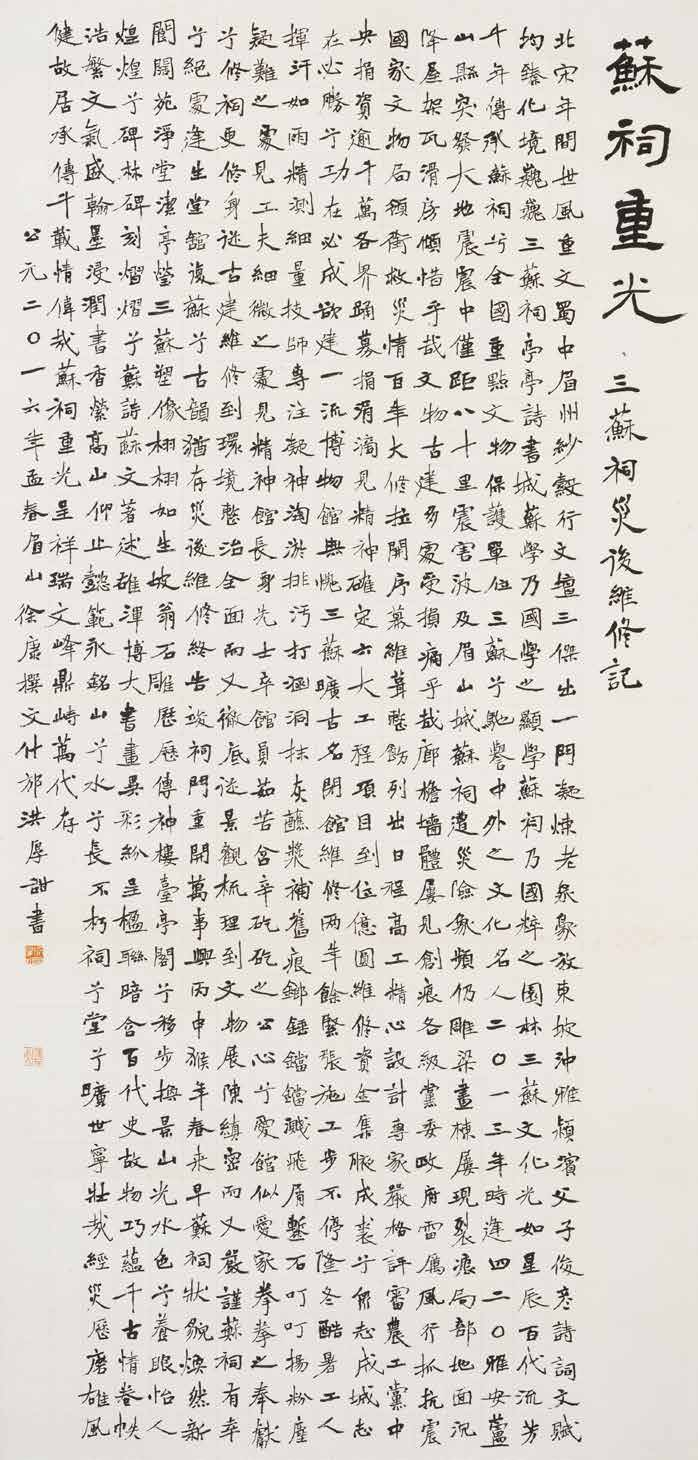 蘇祠重光
三蘇祠災後維修記
北宋年間世風重文蜀中眉州紗縠行文壇三傑出一門凝煉老泉豪放東坡沖雅潁濱父子俊彥詩詞文賦
均臻化境巍巍三蘇祠亭亭詩書城蘇學乃國學之顯學蘇祠乃國粹之園林三蘇文化光如星辰百代流芳
千年傳承蘇祠兮全國重點文物保護單位三蘇兮馳譽中外之文化名人二〇一三年時逢四二〇雅安蘆
山縣突發大地震震中僅距八十里震害波及眉山城蘇祠遭災險象頻仍雕梁畫棟屢現裂痕局部地面沉
降屋架瓦滑房傾惜乎哉文物古建多處受損痛乎哉廊檐墻體屢見創痕各級黨委政府雷厲風行抓抗震
國家文物局領銜救災情百年大修拉開序幕維葺整飭列出日程高工精心設計專家嚴格評審農工黨中
央捐資逾千萬各界踊募捐涓滴見精神確定六大工程項目到位億圓維修資金集腋成裘兮眾志成城志
在必勝兮功在必成欲建一流博物館無愧三蘇曠古名閉館維修两年餘緊張施工步不停隆冬酷暑工人
揮汗如雨精測細量技師專注凝神淘淤排污打涵洞抹灰蘸漿補舊痕鎯錘鐺鐺濺飛屑鏨石叮叮揚粉塵
疑難之處見工夫細微之處見精神館長身先士卒館員茹苦含辛矻矻之公心兮愛館似愛家拳拳之奉獻
兮修祠更修身從古建維修到環境整治全面而又徹底從景觀梳理到文物展陳縝密而又嚴謹蘇祠有幸
兮絕處逢生堂館復蘇兮古韻猶存災後維修終告竣祠門重開萬事興丙申猴年春來早蘇祠狀貌煥然新
閬闊苑淨堂潔亭瑩三蘇塑像栩栩如生坡翁石雕歷歷傳神樓臺亭閣兮移步換景山光水色兮養眼怡人
煌煌兮碑林碑刻熠熠兮蘇詩蘇文著述雄渾博大書畫異彩紛呈楹聯暗含百代史故物巧蘊千古情卷帙
浩繁文氣盛翰墨浸潤書香縈高山仰止懿範永銘山兮水兮長不朽祠兮堂兮曠世寧壯哉經災歷磨雄風
健故居承傳千載情偉哉蘇祠重光呈祥瑞文峰鼎峙萬代存
公元二〇一六年孟春眉山徐康撰文什邡洪厚甜書